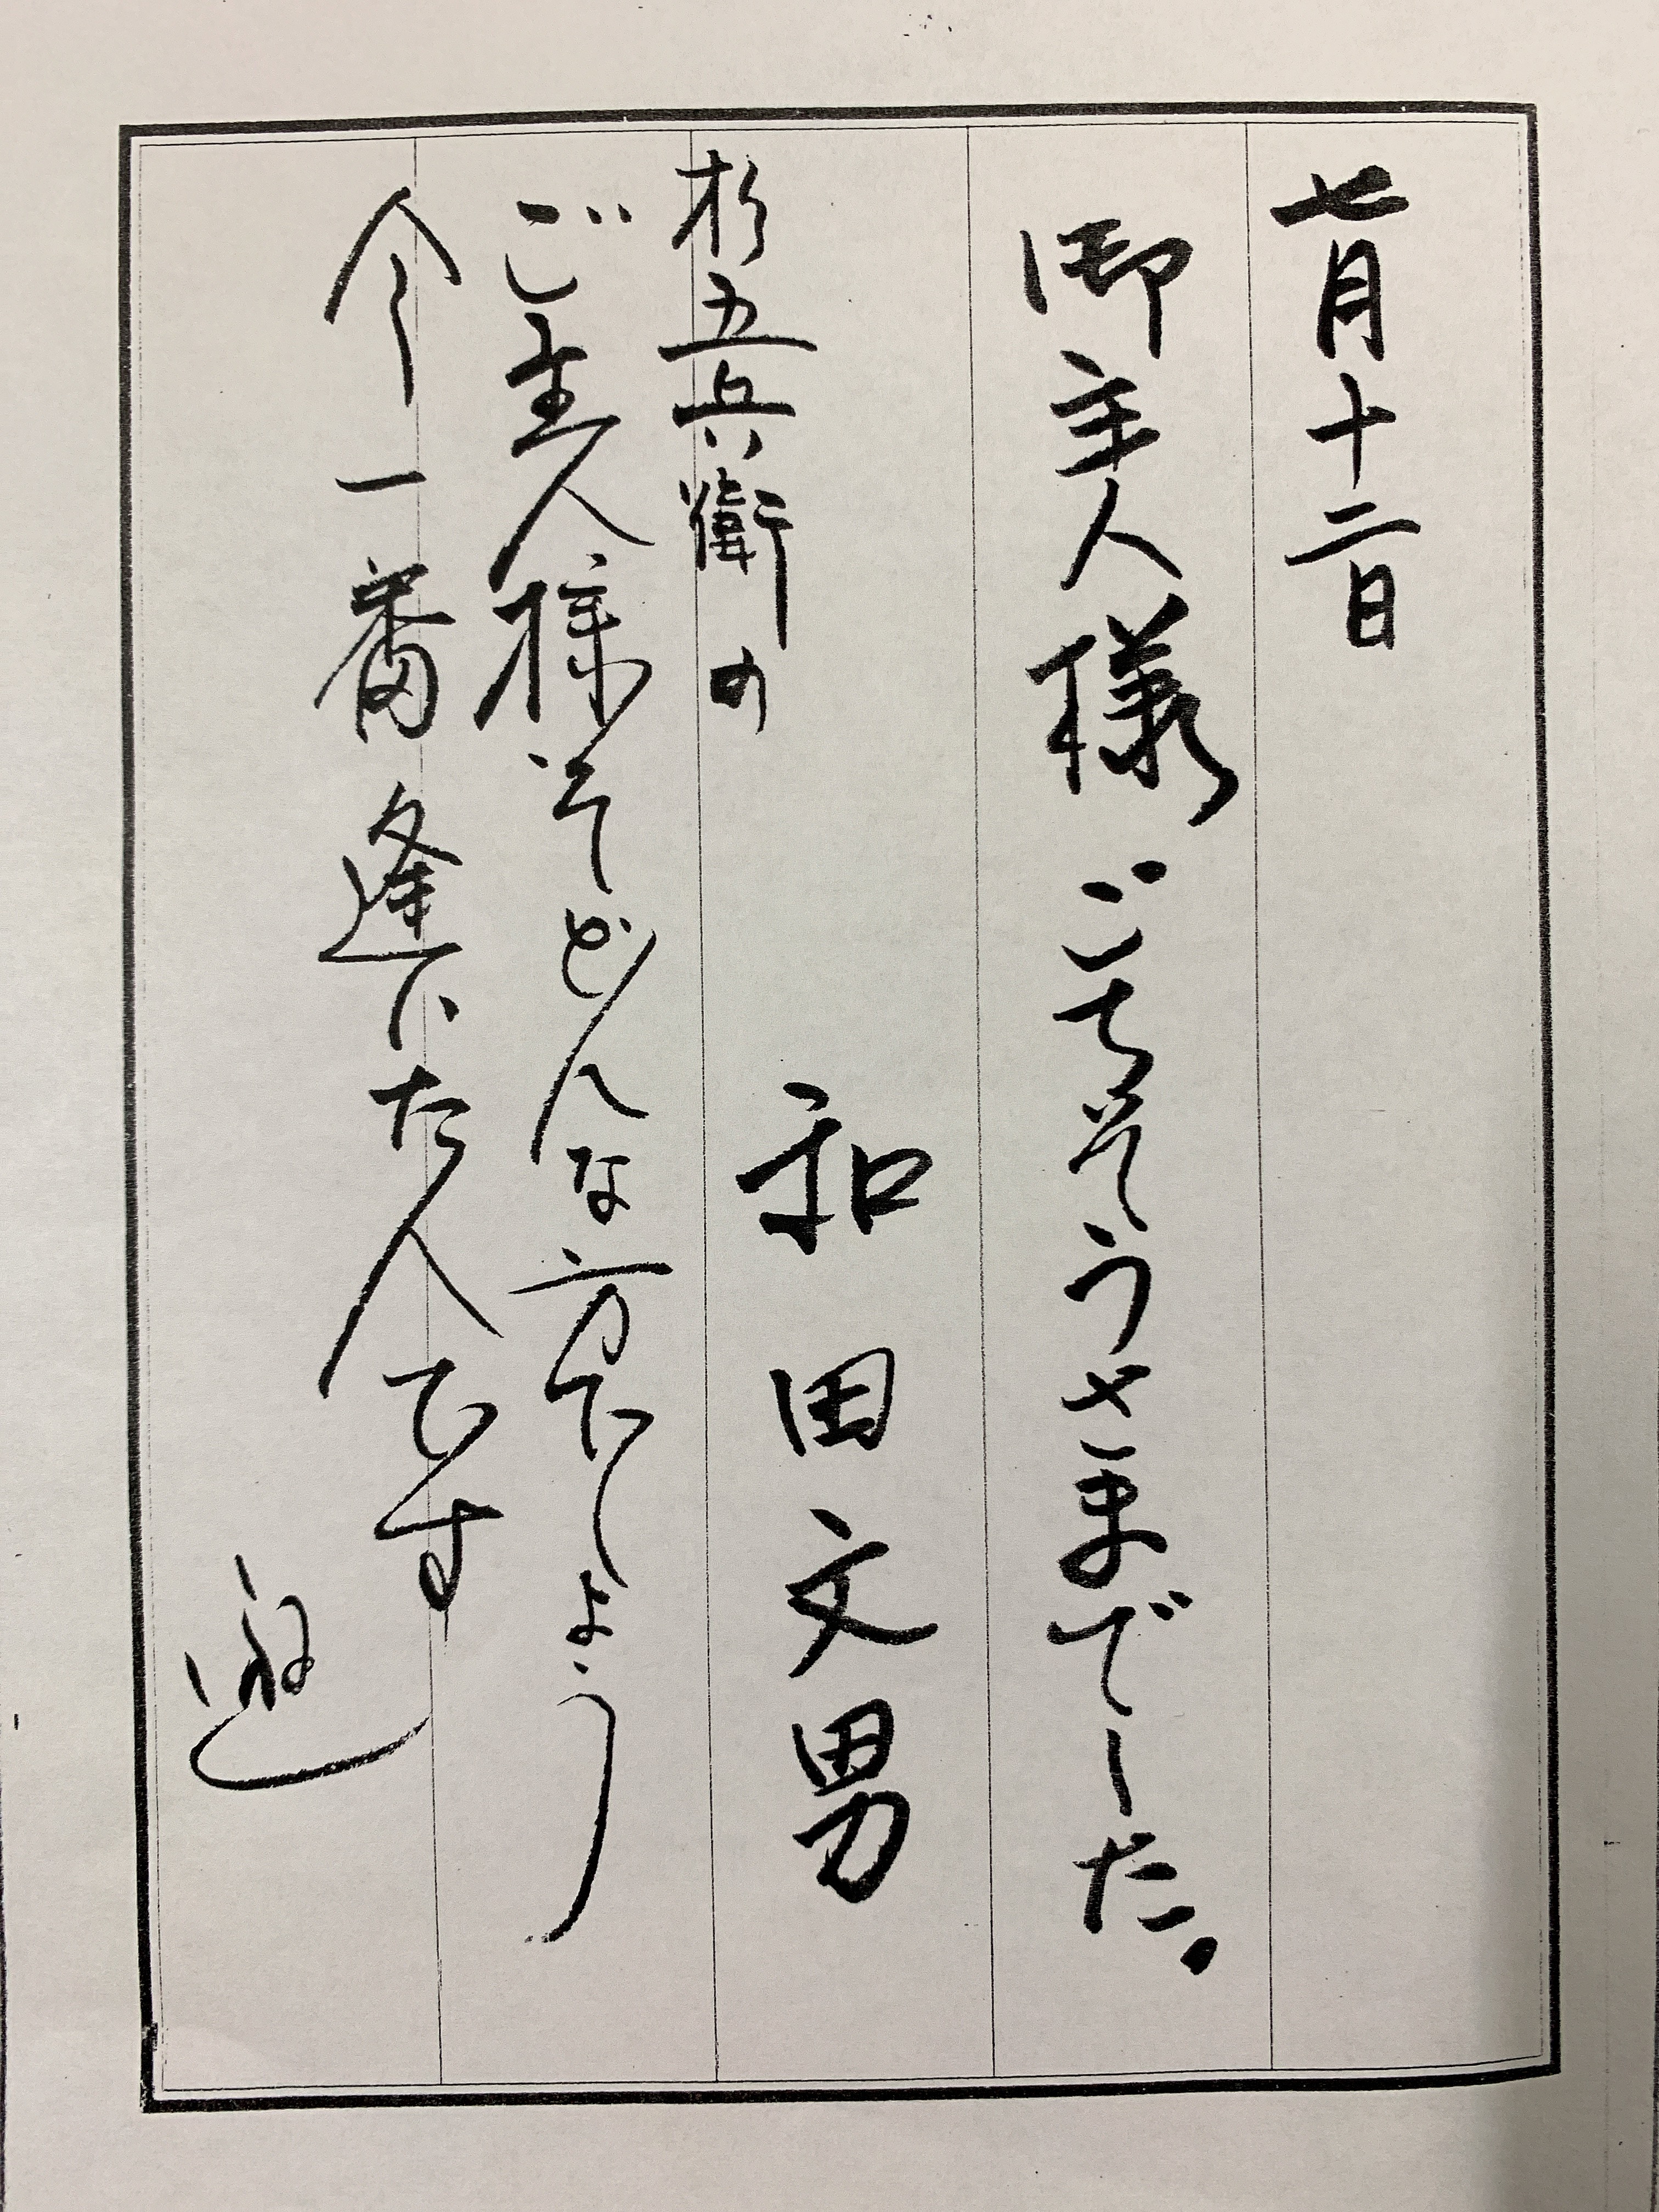 七月十二日
御主人様ごちそうさまでした。
和田文男
杉五兵衛の
ご主人様どんな方でしょう
今一番逢いた人です